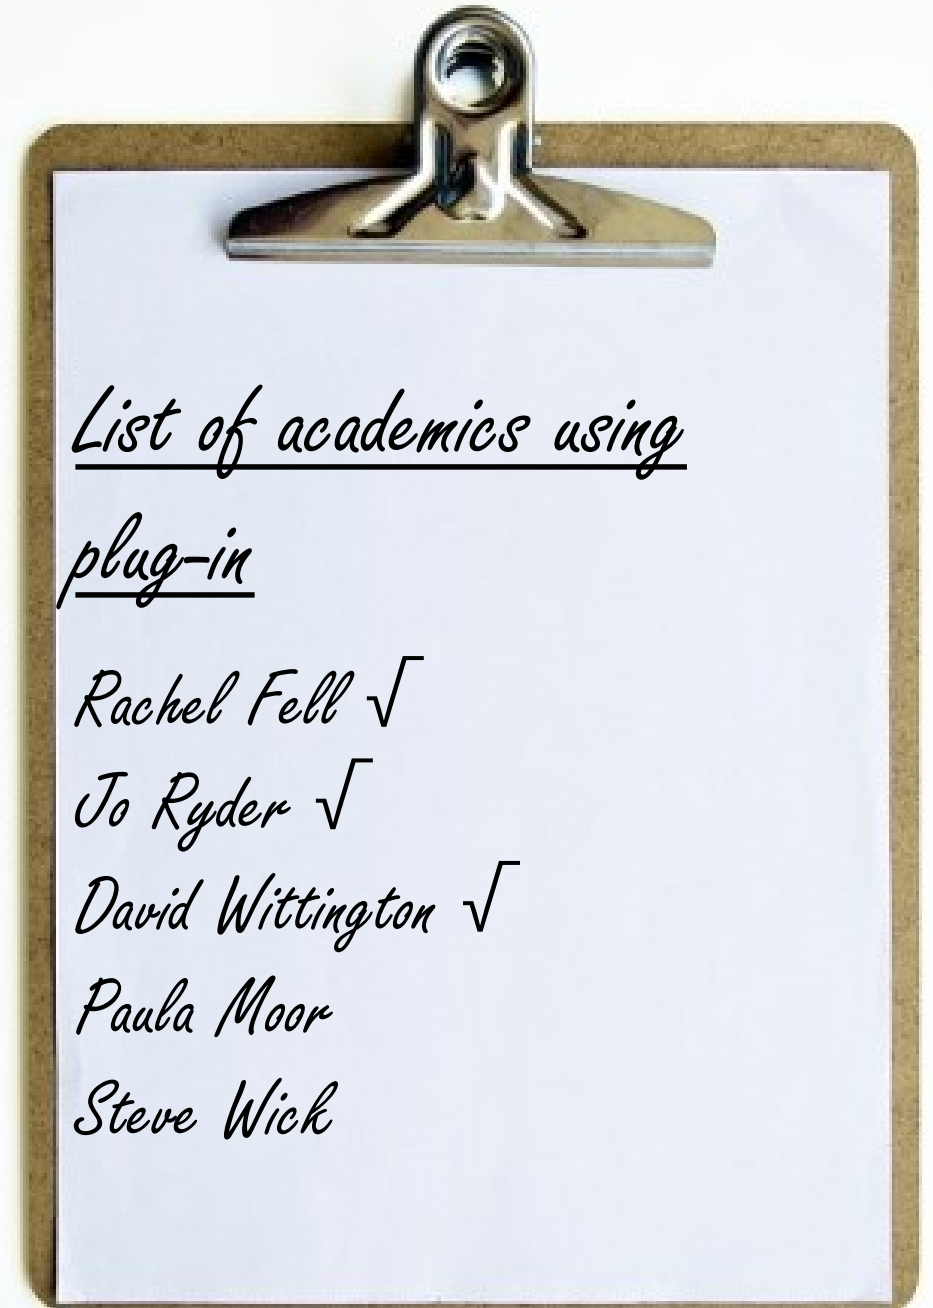 List of academics using
plug-in
Rachel Fell √
Jo Ryder √
David Wittington √
Paula Moor
Steve Wick